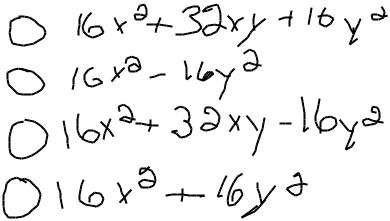 16x² + 32xy + 16y²
16x² - 16y²
16x² + 32xy - 16y²
16x² + 16y²